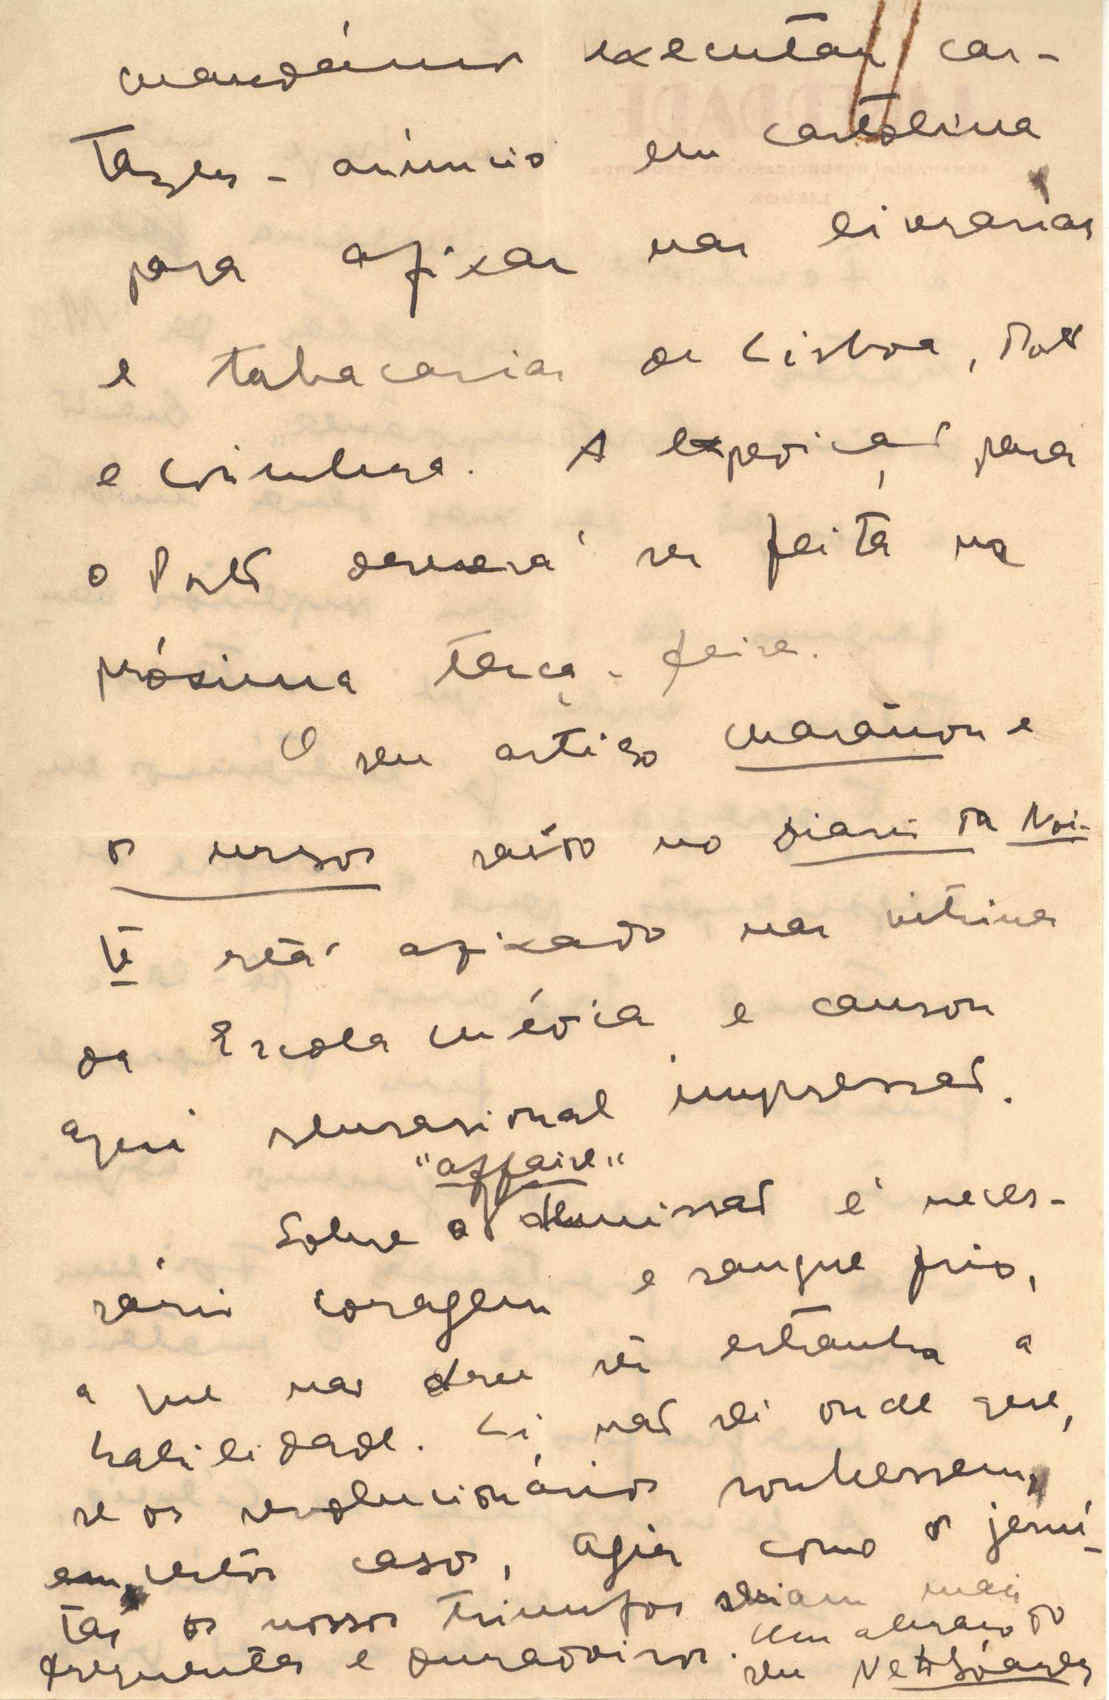 mandámos executar car-
tazes-anúncio em cartolina
para afixar nas livrarias
e tabacarias de Lisboa, Porto
e Coimbra. A expedição para
o Porto deverá ser feita na
próxima terça-feira.
O seu artigo Marañon e
os ursos saído no Diario da Noi-
te está afixado nas vitrinas
da Escola Médica e causou
aqui sensasional impressão.
"affaire"
Sobre o demissão é neces-
sário coragem e sangue frio,
a que não deve ser estranha a
habilidade. Li, não sei onde que,
se os revolucionários soubessem,
em certos casos, agir como os jesuí-
tas os nossos triunfos seriam mais
frequentes e duradoiros.
Um abraço do
seu